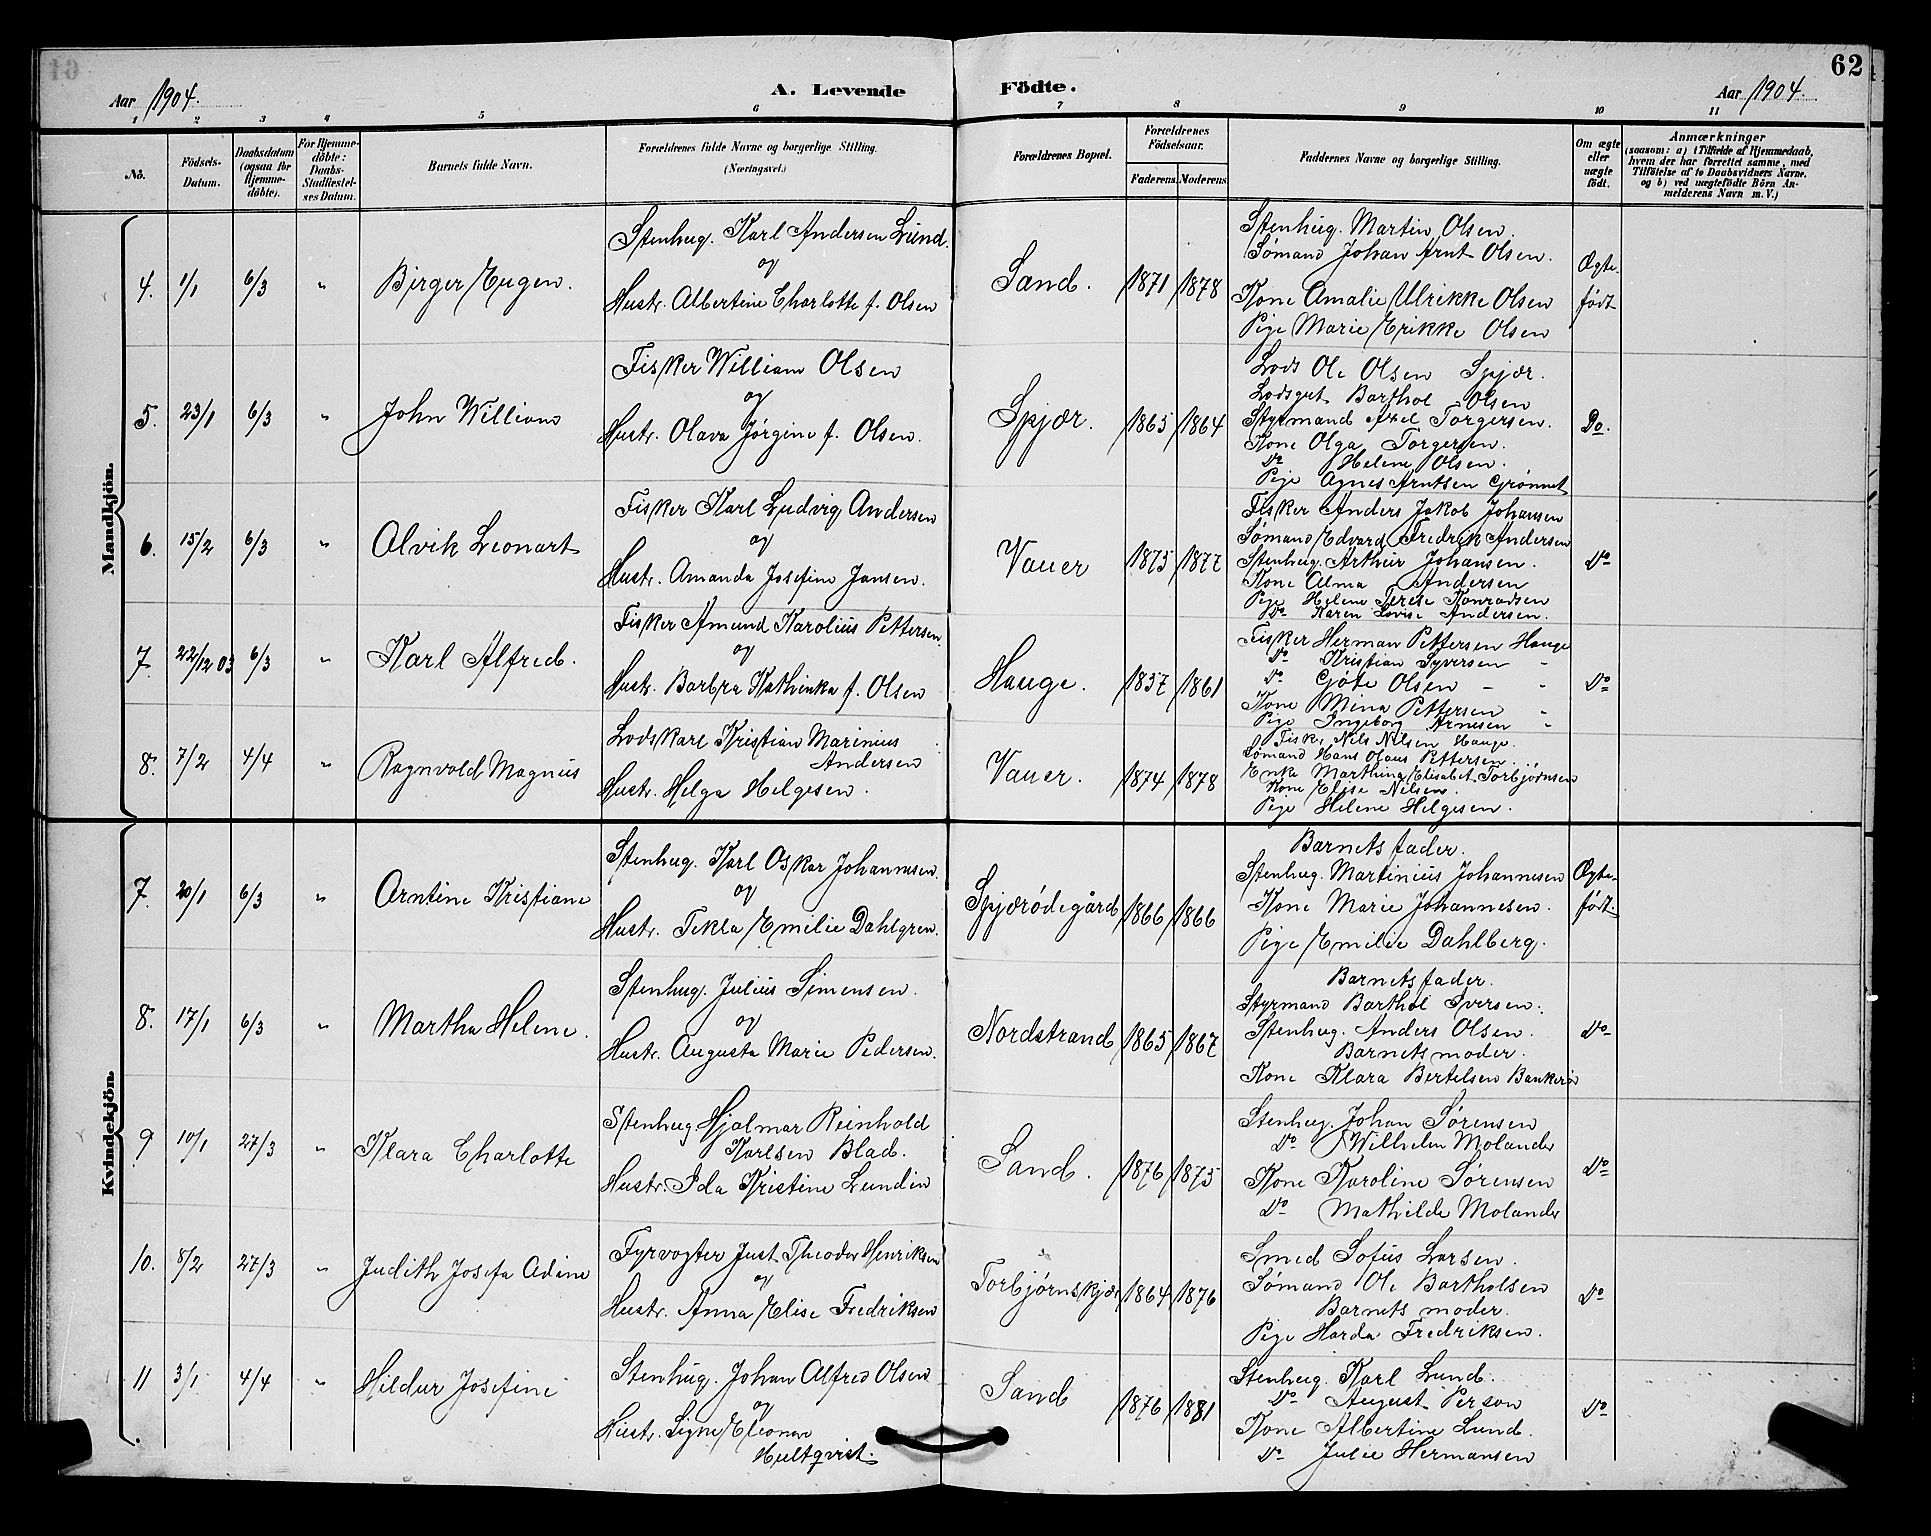 62
Aar 1904. A. Levende Födte. Aar 1904.
1 2 3 4 5 6 7 8 9 10 11
No. Födsels-Datum. Daabsdatum (ogsaa for Hjemmedöbte). For Hjemmedöbte: Daabs-Stadfæstelses Datum. Barnets fulde Navn. Forældrenes fulde Navne og borgerlige Stilling. (Næringsvei.) Forældrenes Bopæl. Forældrenes Födselsaar. Faderens. Moderens. Faddernes Navne og borgerlige Stilling. Om ægte eller uægte födt. Anmærkninger (saasom: a) i Tilfælde af Hjemmedaab, hvem der har forrettet samme, med Tilföielse af to Daabsvidners Navne, og b) ved uægtefödte Börn Anmelderens Navn m. V.)
Mandkjön.
4. 1/1 6/3 " Birger Eugen.
Stenhug. Karl Andersen Lund.
og
Hustr. Albertine Charlotte f. Olsen
Sand. 1871 1878
Stenhug. Martin Olsen.
Sømand Johan Arnt Olsen.
Kone Amalie Ulrikke Olsen
Pige Marie Erikke Olsen
Ægte født
5. 23/1 6/3 " John William
Fisker William Olsen
og
Hustr. Olava Jørgine f. Olsen.
Spjær. 1865 1864
Lods Ole Olsen Spjær.
Lodsgut Barthol Olsen
Styrmand Axel Torgersen.
Kone Olga Torgersen.
Do Helene Olsen.
Pige Agnes Arntsen Grønnet
Do.
6. 15/2 6/3 " Alvik Leonart
Fisker Karl Ludvig Andersen
og
Hustr. Amanda Josefine Jansen.
Vauer 1875 1877
Fisker Anders Jakob Johansen
Sømand Edvard Fredrik Andersen
Stenhug. Arthur Johansen.
Kone Alma Andersen
Pige Helene Terese Konradsen
Do Karen Lovise Andersen.
Do
7. 22/12 03 6/3 " Karl Alfred.
Fisker Amund Karolius Pettersen
og
Hustr. Barbra Kathinka f. Olsen
Hauge. 1857 1861
Fisker Herman Pettersen Hauge
Do Kristian Syversen "
Do Gjøte Olsen "
Kone Mina Pettersen "
Pige Ingeborg Arnesen "
Do
8. 7/2 4/4 " Ragnvald Magnus
Lodskarl Kristian Marinius
Andersen
Hustr. Helga Helgesen.
Vauer. 1874 1878
Fisk. Nils Nilsen Hauge.
Sømand Hans Olaus Pettersen.
Enke Marthine Elisabet Torbjørnsen
Kone Elise Nilsen.
Pige Helene Helgesen.
Kvindekjön.
7. 20/1 6/3 " Arntine Kristiane
Stenhug. Karl Oskar Johannesen.
og
Hustr. Tekla Emilie Dahlgren.
Spjærødegård 1866 1866
Barnets fader.
Stenhug. Martinius Johannesen
Kone Marie Johannesen.
Pige Emilie Dahlberg.
Ægte født.
8. 17/1 6/3 " Martha Helene.
Stenhug. Julius Simensen.
og
Hustr. Augusta Marie Pedersen.
Nordstrand 1865 1867
Barnets fader.
Styrmand Barthol Iversen.
Stenhug. Anders Olsen.
Barnets moder.
Kone Klara Bertelsen Bankerød
Do
9 10/1 27/3 " Klara Charlotte
Stenhug Hjalmar Reinhold
Karlsen Blad.
Hustr. Ida Kristine Lundin
Sand. 1876 1875
Stenhug. Johan Sørensen
Do Wilhelm Molander
Kone Karoline Sørensen
Do Mathilde Molander
Do
10. 8/2 27/3 " Judith Josefa Adine
Fyrvogter Just Theodor Henriksen
og
Hustr. Anna Elise Fredriksen
Torbjørnskjær 1864 1876
Smed Sofus Larsen.
Sømand Ole Bartholsen
Barnets moder.
Pige Harda Fredriksen.
Do
11 3/1 4/4 " Hildur Josefine
Stenhug. Johan Alfred Olsen
og
Hustr. Signe Eleonore
Hultqvist.
Sand 1876 1881
Stenhug. Karl Lund.
Do August Person
Kone Albertine Lund.
Do Julie Hermansen
Do